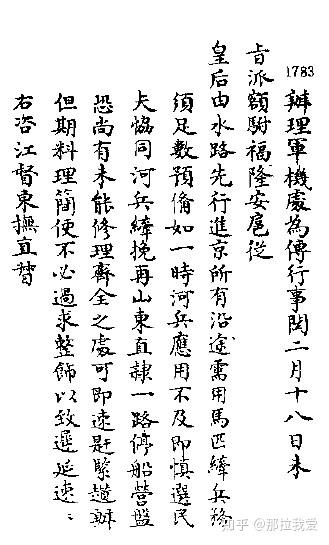 1783
辦理軍機處為傳行事閏二月十八日奉
旨派額駙福隆安扈從
皇后由水路先行進京所有沿途需用馬匹縴兵務
須足數預偹如一時河兵應用不及即慎選民
夫協同河兵縴挽再山東直隷一路停船營盤
恐尚有未能修理齊全之處可即速赶緊趲辦
但期料理簡便不必過求整飾以致遲延速速
右咨江督東撫直督
知乎 @那拉我爱